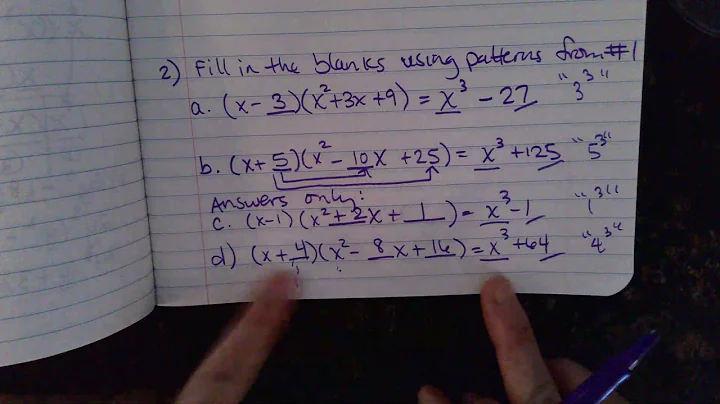 2) Fill in the blanks using patterns from #1
a. (x - 3)(x² + 3x + 9) = x³ - 27 "3³"
b. (x + 5)(x² - 10x + 25) = x³ + 125 "5³"
Answers only:
c. (x-1)(x² + 2x + 1) = x³ - 1 "1³"
d) (x + 4)(x² - 8x + 16) = x³ + 64 "4³"